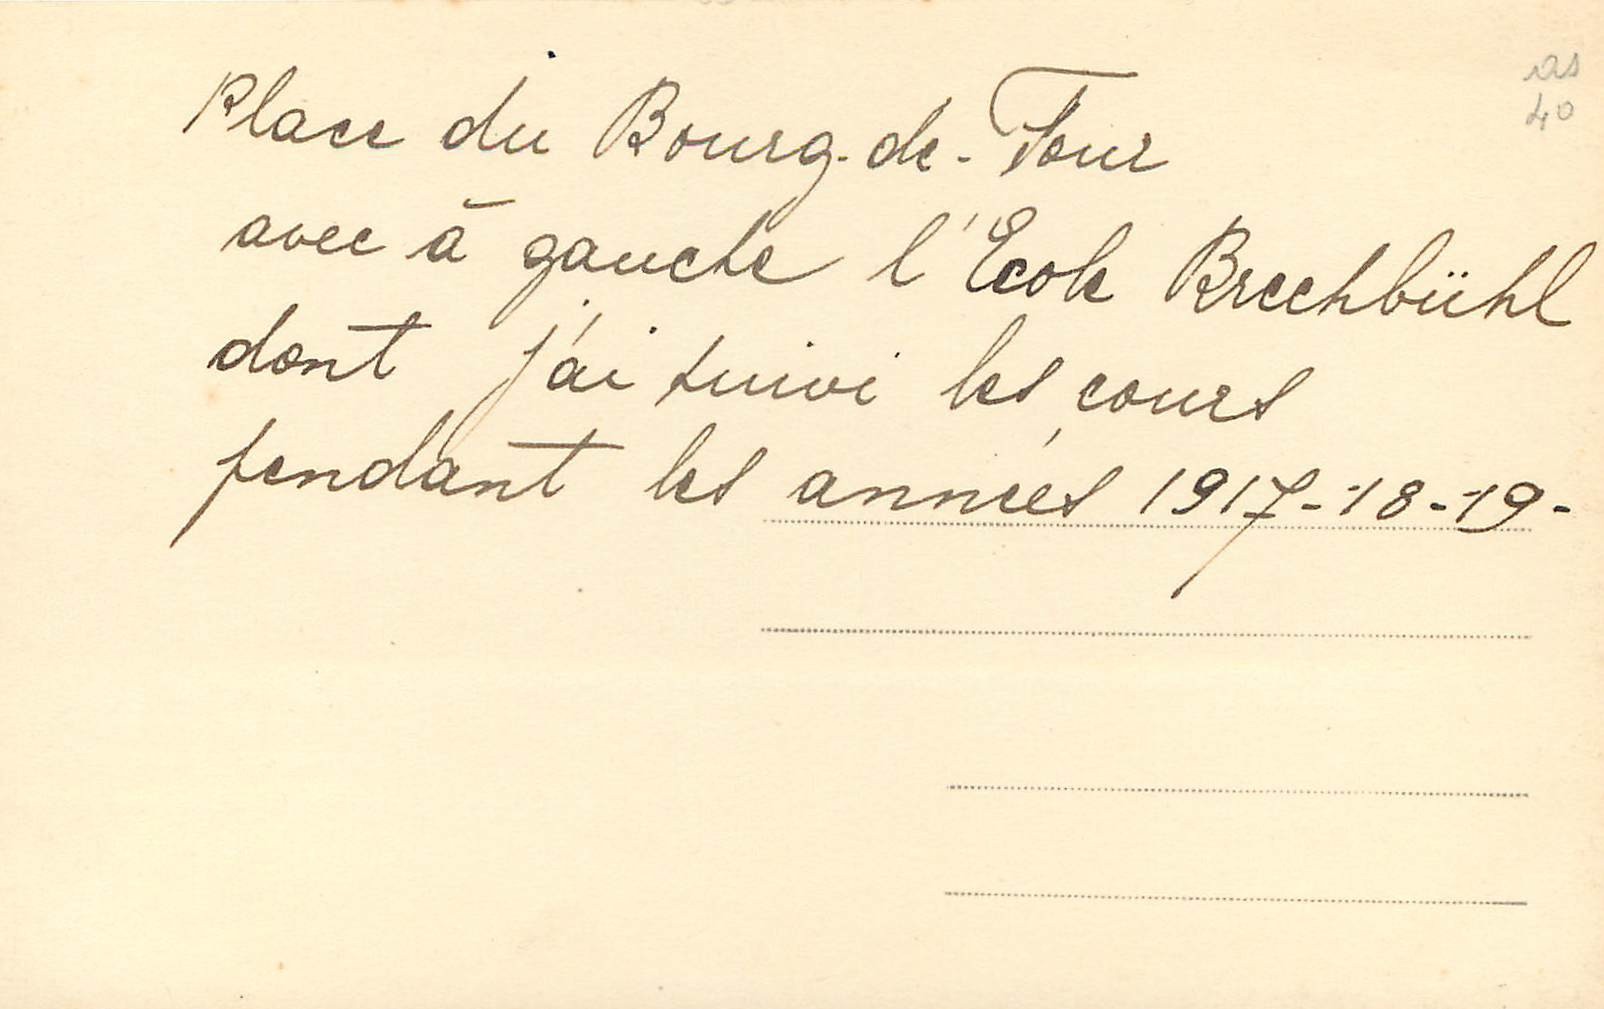 Place du Bourg-de-Four
avec à gauche l'Ecole Brechbühl
dont j'ai suivi les cours
pendant les années 1917-18-19-
40